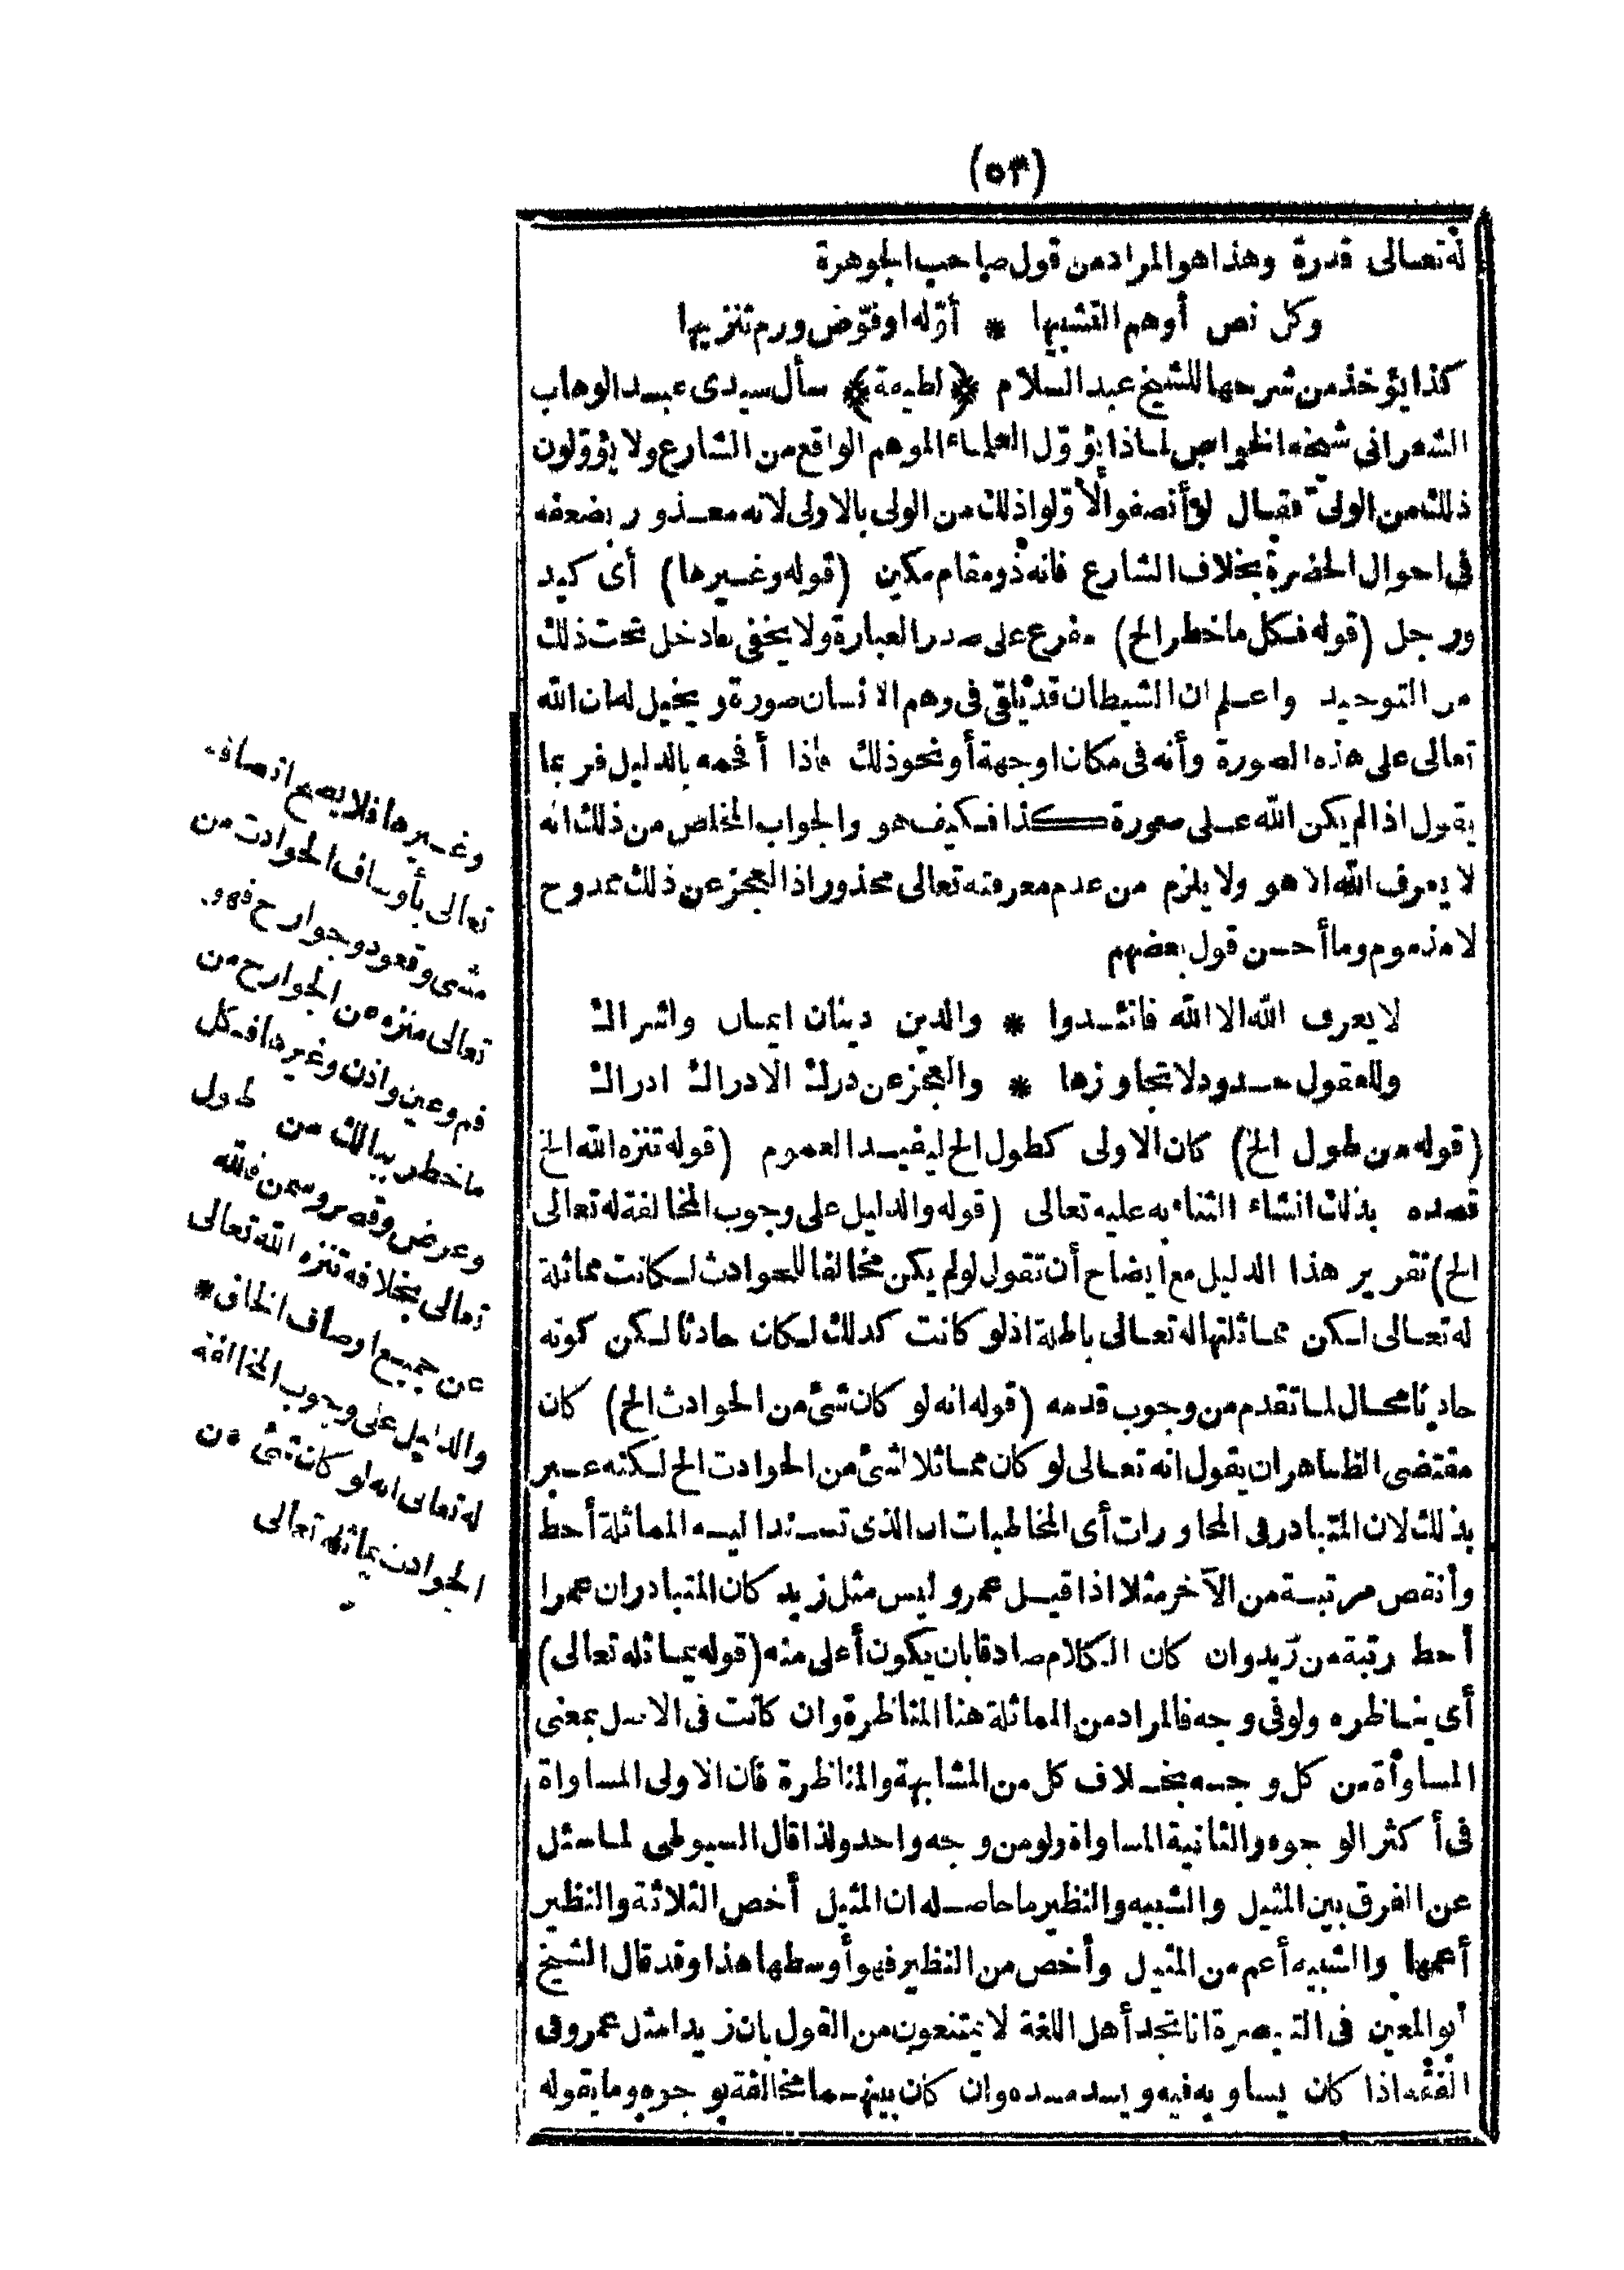 (٥٣)
له تعالى قدرة وهذا هو المراد من قول صاحب الجوهرة
وكل نص أوهم التشبيها * أوّله او فوّض ورم تنزيها
كذا يؤخذ من شرحها للشيخ عبد السلام ﴿لطيفة﴾ سأل سيدى عبد الوهاب
الشعرانى شيخه الخواص لماذا يؤوّل العلماء الموهم الواقع من الشارع ولا يؤوّلون
ذلك من الولى فقال لو أنصفوا لأوّلوا ذلك من الولى بالاولى لانه معذور بضعفه
فى احوال الحضرة بخلاف الشارع فانه ذو مقام مكين (قوله وغيرها) أى كيد
ورجل (قوله فكل ما خطر الخ) مفرع على صدر العبارة ولا يخفى مادخل تحت ذلك
من التوحيد واعلم ان الشيطان قد يلقى فى وهم الانسان صورة و يخيل له ان الله
تعالى على هذه الصورة وأنه فى مكان او جهة أو نحو ذلك فاذا أفحمه بالدليل فربما
يقول اذا لم يكن الله على صورة كذا فكيف هو والجواب المخلص من ذلك انه
لا يعرف الله الا هو ولا يلزم من عدم معرفته تعالى محذور اذ العجز عن ذلك ممدوح
لا مذموم وما أحسن قول بعضهم
لا يعرف الله الا الله فاتئدوا * والدين دينان ايمان واشراك
وللعقول حدود لا تجاوزها * والعجز عن درك الادراك ادراك
(قوله من طول الخ) كان الاولى كطول الخ ليفيد العموم (قوله تنزه الله الخ
قصده بذلك انشاء الثناء به عليه تعالى (قوله والدليل على وجوب المخالفة له تعالى
الخ) تقرير هذا الدليل مع ايضاح أن تقول لو لم يكن مخالفا للحوادث لكانت مماثلة
له تعالى لكن مماثلتها له تعالى باطلة اذ لو كانت كذلك لكان حادثا لكن كونه
حادثا محال لما تقدم من وجوب قدمه (قوله انه لو كان شئ من الحوادث الخ) كان
مقتضى الظاهر ان يقول انه تعالى لو كان مماثلا لشئ من الحوادث الخ لكنه عبر
بذلك لان المتبادر فى المحاورات أى المخاطبات ان الذى تسند اليه المماثلة أحط
وأنقص مرتبة من الآخر مثلا اذا قيل عمرو ليس مثل زيد كان المتبادر ان عمرا
أحط رتبة من زيد وان كان الكلام صادقا بان يكون أعلى منه (قوله يماثله تعالى)
أى يناظره ولو فى وجه فالمراد من المماثلة هنا المناظرة وان كانت فى الاصل بمعنى
المساوأة من كل وجه بخلاف كل من المشابهة والمناظرة فان الاولى المساواة
فى أكثر الوجوه والثانية المساواة ولو من وجه واحد ولذا قال السيوطى لما سئل
عن الفرق بين المثيل والشبيه والنظير ما حاصله ان المثيل أخص الثلاثة والنظير
أعمها والشبيه أعم من المثيل وأخص من النظير فهو أوسطها هذا وقد قال الشيخ
أبو المعين فى التبصرة انا نجد أهل اللغة لا يمتنعون من القول بان زيدا مثل عمرو فى
الفقه اذا كان يساويه فيه ويسد مسده وان كان بينهما مخالفة بوجوه وما يقوله
وغيرها فلا يصح اتصافه
تعالى بأوصاف الحوادث من
مشى وقعود وجوارح فهو
تعالى منزه عن الجوارح من
فم وعين واذن وغيرها فكل
ما خطر ببالك من طول
وعرض وقصر وسمن فالله
تعالى بخلافه تنزه الله تعالى
عن جميع اوصاف الخلق *
والدليل على وجوب المخالفة
له تعالى انه لو كان شئ من
الحوادث يماثله تعالى